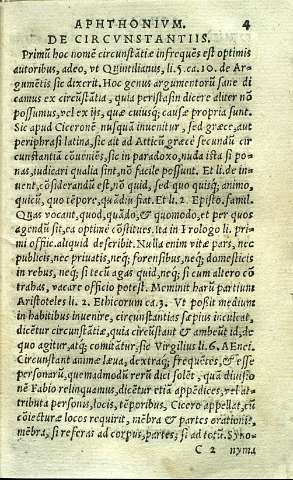 APHTHONIVM. 4
DE CIRCVNSTANTIIS.
Primũ hoc nomẽ circũstãtiæ infrequẽs est optimis
autoribus, adeo, vt Quintilianus, li. 5. ca. 10. de Ar-
gumẽtis sic dixerit. Hoc genus argumentorũ sane di
camus ex circũstãtia, quia peristasin dicere aliter nõ
possumus, vel ex ijs, quæ cuiusq; causæ propria sunt.
Sic apud Ciceronẽ nusquã inuenitur, sed græce, aut
periphrasi latina, sic ait ad Atticũ græcẽ secundũ cir
cunstantiã cõueniẽs, sic in paradoxo, nuda ista si po-
nas, iudicari qualia sint, nõ facile possunt. Et li. de in-
uent, cõsiderandũ est, nõ quid, sed quo quisq; animo,
quicũ, quo tẽpore, quãdiu fiat. Et li. 2. Epistο. famil.
Quas vocant, quod, quãdo, & quomodo, et per quos
agendũ sit, ea optime cõstitues. Ita in Prologo li. pri
mi offic. aliquid describit. Nulla enim vitæ pars, nec
publicis, nec priuatis, neq; forensibus, neq; domestic
is in rebus, neq; si tecũ agas quid, neq; si cum altero cõ
trahas, vacare officio potest. Meminit harũ partiunt
Aristoteles li. 2. Ethicorum ca. 3. Vt possit medium
in habitibus inuenire, circũstantias sæpius inculcat,
dicẽtur circũstãtiæ, quia circũstant & ambeũt id, de
quo agitur, atq; comitãtur, sic Virgilius li. 6. AEnei.
Circunstant animæ læua, dextraq; frequẽtes, & esse
personarũ, quemadmodũ rerũ dici solẽt, quã diuisio
nẽ Fabio relinquamus, dicẽtur etiã appẽdices, vel at-
tributa personis, locis, tẽporibus, Cicero appellat, cũ
cõiecturæ locos requirit, mẽbra & partes orationis,
mẽbra, si referas ad corpus, partes, si ad totũ. Syno-
C 2 nyma